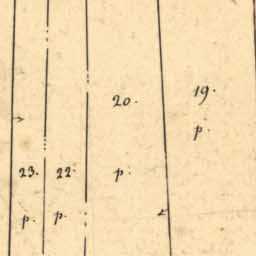 19.
20.
p.
23. 22.
p.
p. p.